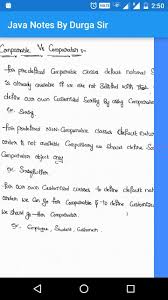 2:50
Java Notes By Durga Sir
Comparable Vs Comparator :-
-for predefined Comparable classes default natural S
is already available if we are not satisfied with that
define our own customized Sorting By using Compara
Ex. String
-for predefined Non-Comparable classes default natural
order is not available Compulsory we should define So
Comparator object only
Ex. StringBuffer
-for our own Customized classes to define default nat
order we can go for Comparable & to define Customize
we should go for Comparator.
Ex. Employee, Student, Customer